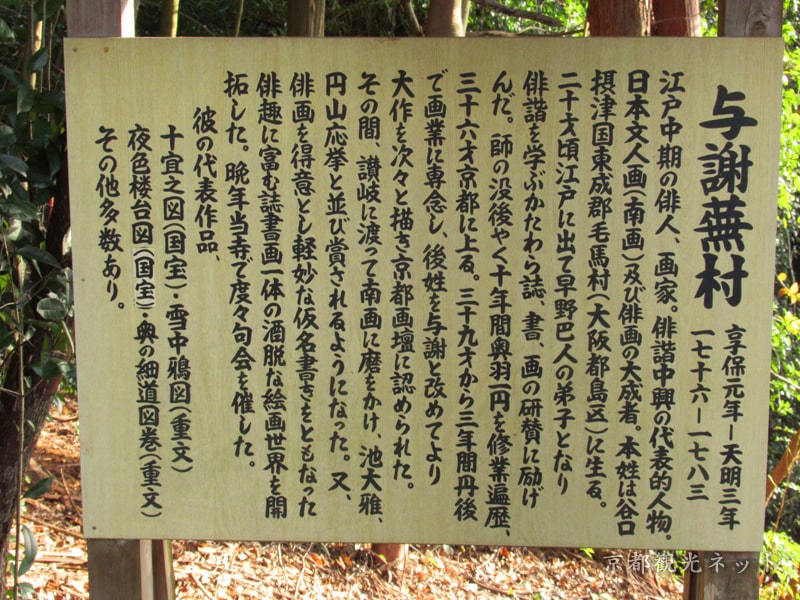 与謝蕪村
享保元年ー天明三年
一七十六ー一七八三
江戸中期の俳人、画家。俳諧中興の代表的人物。
日本文人画(南画)及び俳画の大成者。本姓は谷口
摂津国東成郡毛馬村(大阪都島区)に生る。
二十才頃江戸に出て早野巴人の弟子となり
俳諧を学ぶかたわら誌、書、画の研賛に励げ
んだ。師の没後やく十年間奥羽一円を修業遍歴、
三十六才京都に上る。三十九才から三年間丹後
で画業に専念し、後姓を与謝と改めてより
大作を次々と描き京都画壇に認められた。
その間、讃岐に渡って南画に磨をかけ、池大雅、
円山応挙と並び賞されるようになった。又、
俳画を得意とし軽妙な仮名書きをともなった
俳趣に富む誌書画一体の洒脱な絵画世界を開
拓した。晩年当寺で度々句会を催した。
彼の代表作品、
十宜之図(国宝)・雪中鴉図(重文)
夜色楼台図(国宝)・奥の細道図巻(重文)
その他多数あり。
京都観光ネット